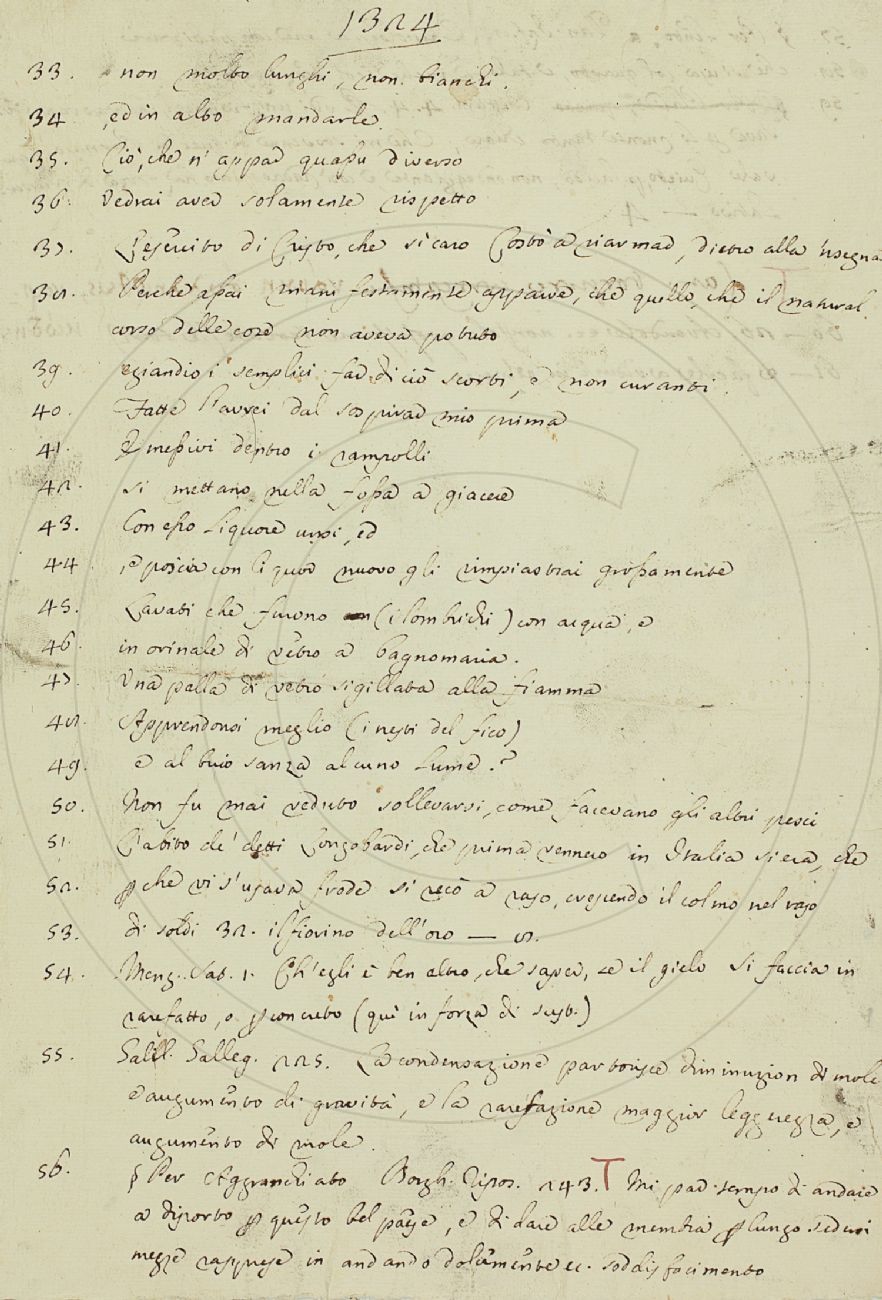 1324
33. non molto lunghi, non. bianchi.
34 , ed in alto mandarle
35. Ciò, che n' appar quassù diverso
36. Vedrai aver solamente rispetto
37. L'esercito di Cristo, che sì caro Costò a riarmar, dietro alla 'nsegna
38. Perche assai manifestamente appare, che quello, che il natural
corso delle cose non aveva potuto
39. eziandio i semplici far di ciò scorti, e non curanti.
40. Fatte l'avrei dal sospirar mio prima
41. E messivi dentro i rampolli
42. si mettano nella fossa a giacere
43. Con esso liquore unsi, ed
44. , e poscia con liquor nuovo gli rimpiastrai grossamente
45. Lavati che furono (i lombrichi) con acqua, e
46. in orinale di vetro a bagnomaria.
47. Una palla di vetro sigillata alla fiamma
48. Apprendonsi meglio (i nesti del fico)
49. e al buio sanza alcuno lume.
50. Non fu mai veduto sollevarsi, come facevano gli altri pesci
51. L'abito de' detti Longobardi, che prima vennero in Italia si era, che
52. p che vi s'usava frode si recò a raso, crescendo il colmo nel raso
53. di soldi 32. il fiorino dell'oro — 2.
54. Meng. Sat. 1. Ch'egli è ben altro, che saper, se il gielo Si faccia in
rarefatto, o p concreto (quì in forza di sust.)
55. Gall. Galleg. 225. La condensazione partorisce diminuzion di mole
e augumento di gravità, e la rarefazione maggior leggerezza, e
augumento di mole.
56. § Per Aggranchiato Borgh. Ripos. 243. T Mi par tempo di andare
a diporto p questo bel paese, e di dare alle membra p lungo seder
mezze rapprese in andando dolcemente ec. soddisfacimento